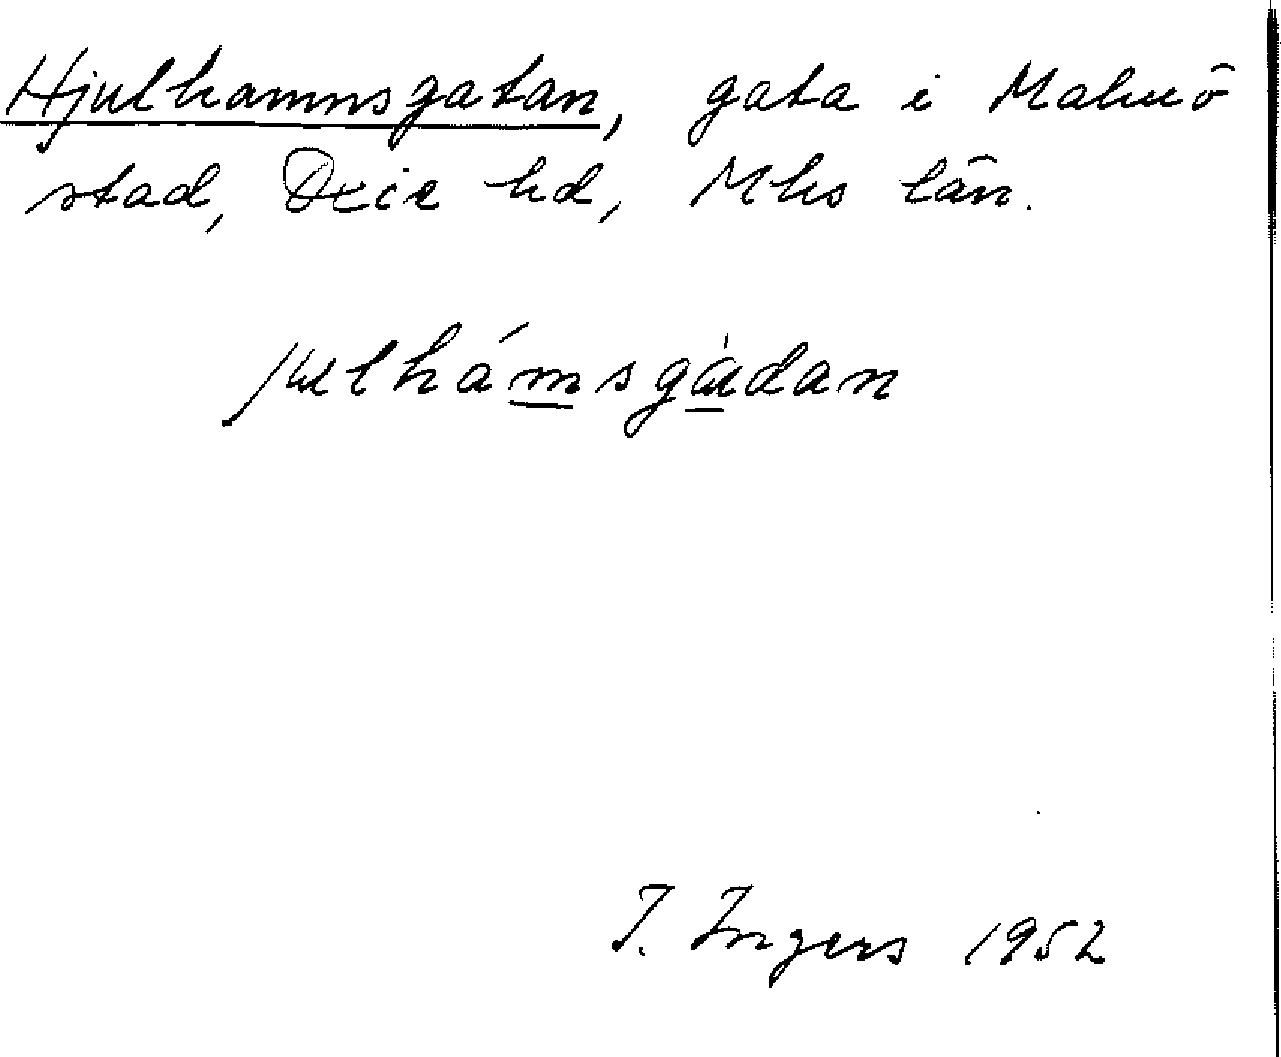 Hjulhamnsgatan, gata i Malmö
stad, Oxie hd, Mhs län.
julhámsgàdan
I. Ingers 1952